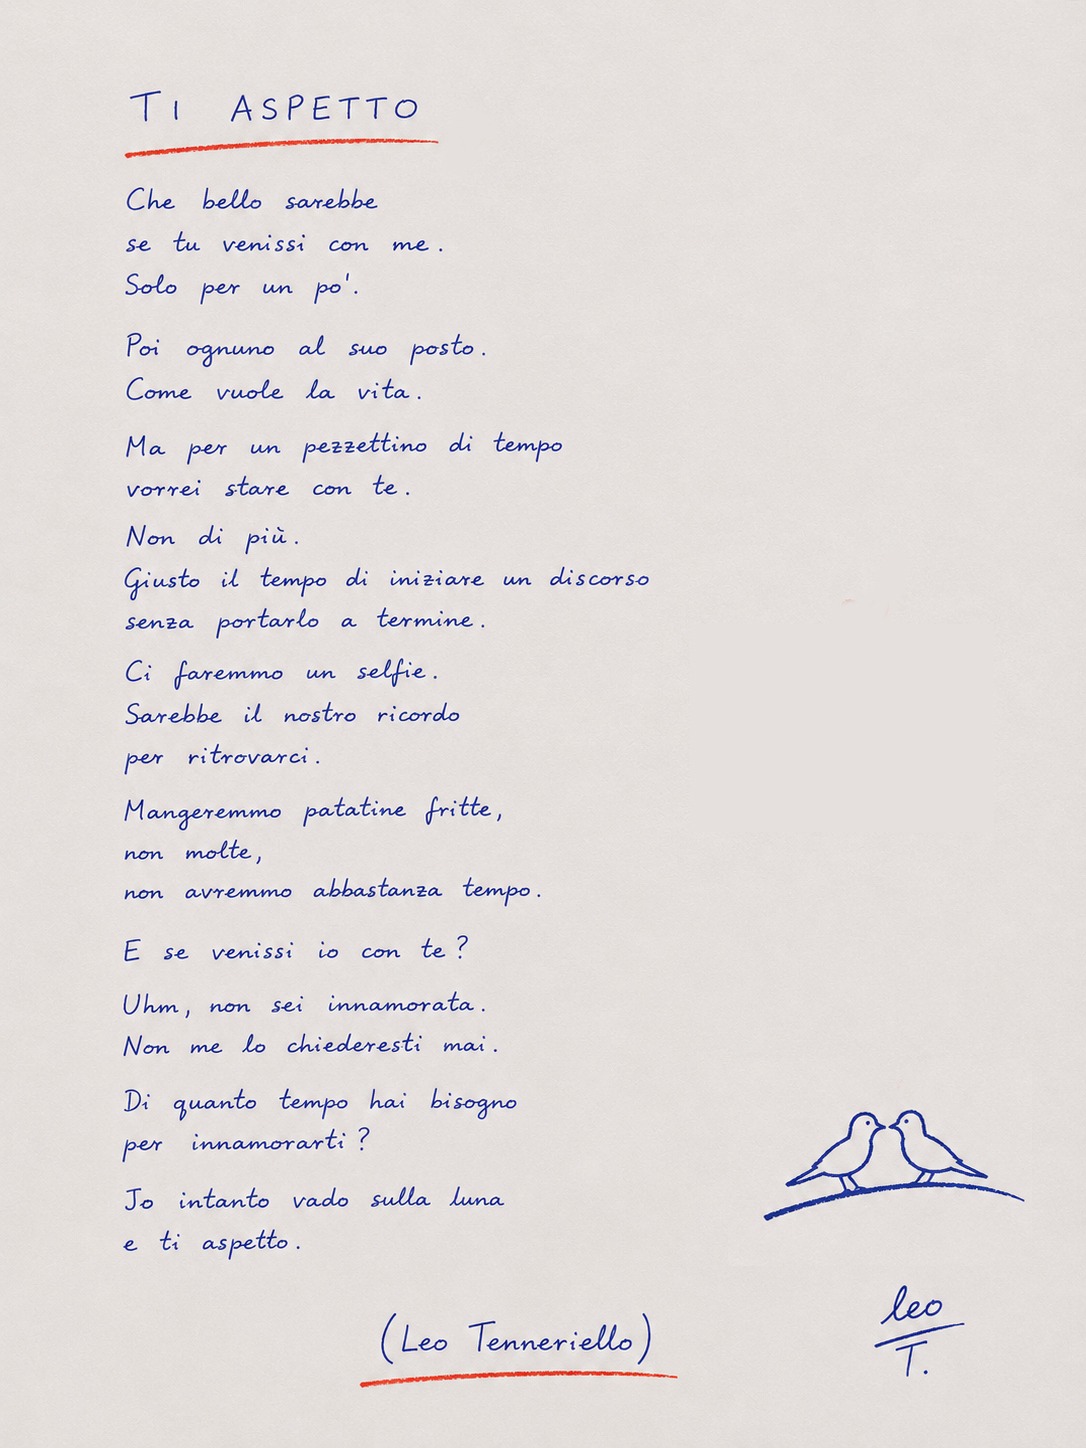 TI ASPETTO
Che bello sarebbe
se tu venissi con me.
Solo per un po'.
Poi ognuno al suo posto.
Come vuole la vita.
Ma per un pezzettino di tempo
vorrei stare con te.
Non di più.
Giusto il tempo di iniziare un discorso
senza portarlo a termine.
Ci faremmo un selfie.
Sarebbe il nostro ricordo
per ritrovarci.
Mangeremmo patatine fritte,
non molte,
non avremmo abbastanza tempo.
E se venissi io con te?
Uhm, non sei innamorata.
Non me lo chiederesti mai.
Di quanto tempo hai bisogno
per innamorarti?
Jo intanto vado sulla luna
e ti aspetto.
(Leo Tenneriello)
leo
T.